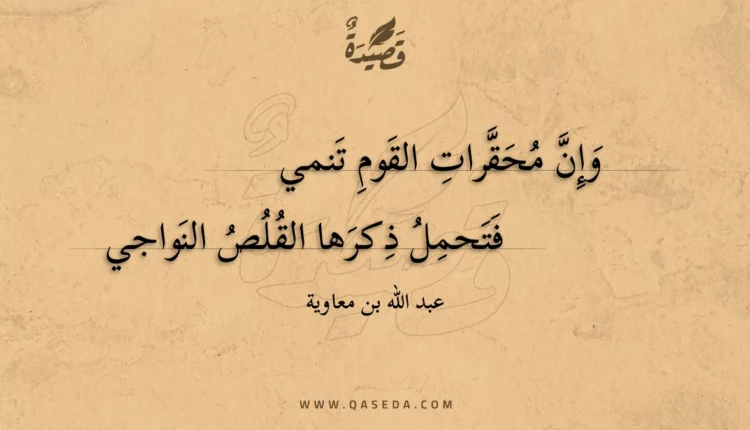 قَصِيدَةٌ
وَإِنَّ مُحَقَّراتِ القَومِ تَنمي
فَتَحمِلُ ذِكرَها القُلُصُ النَواجي
عبد الله بن معاوية
WWW.QASEDA.COM